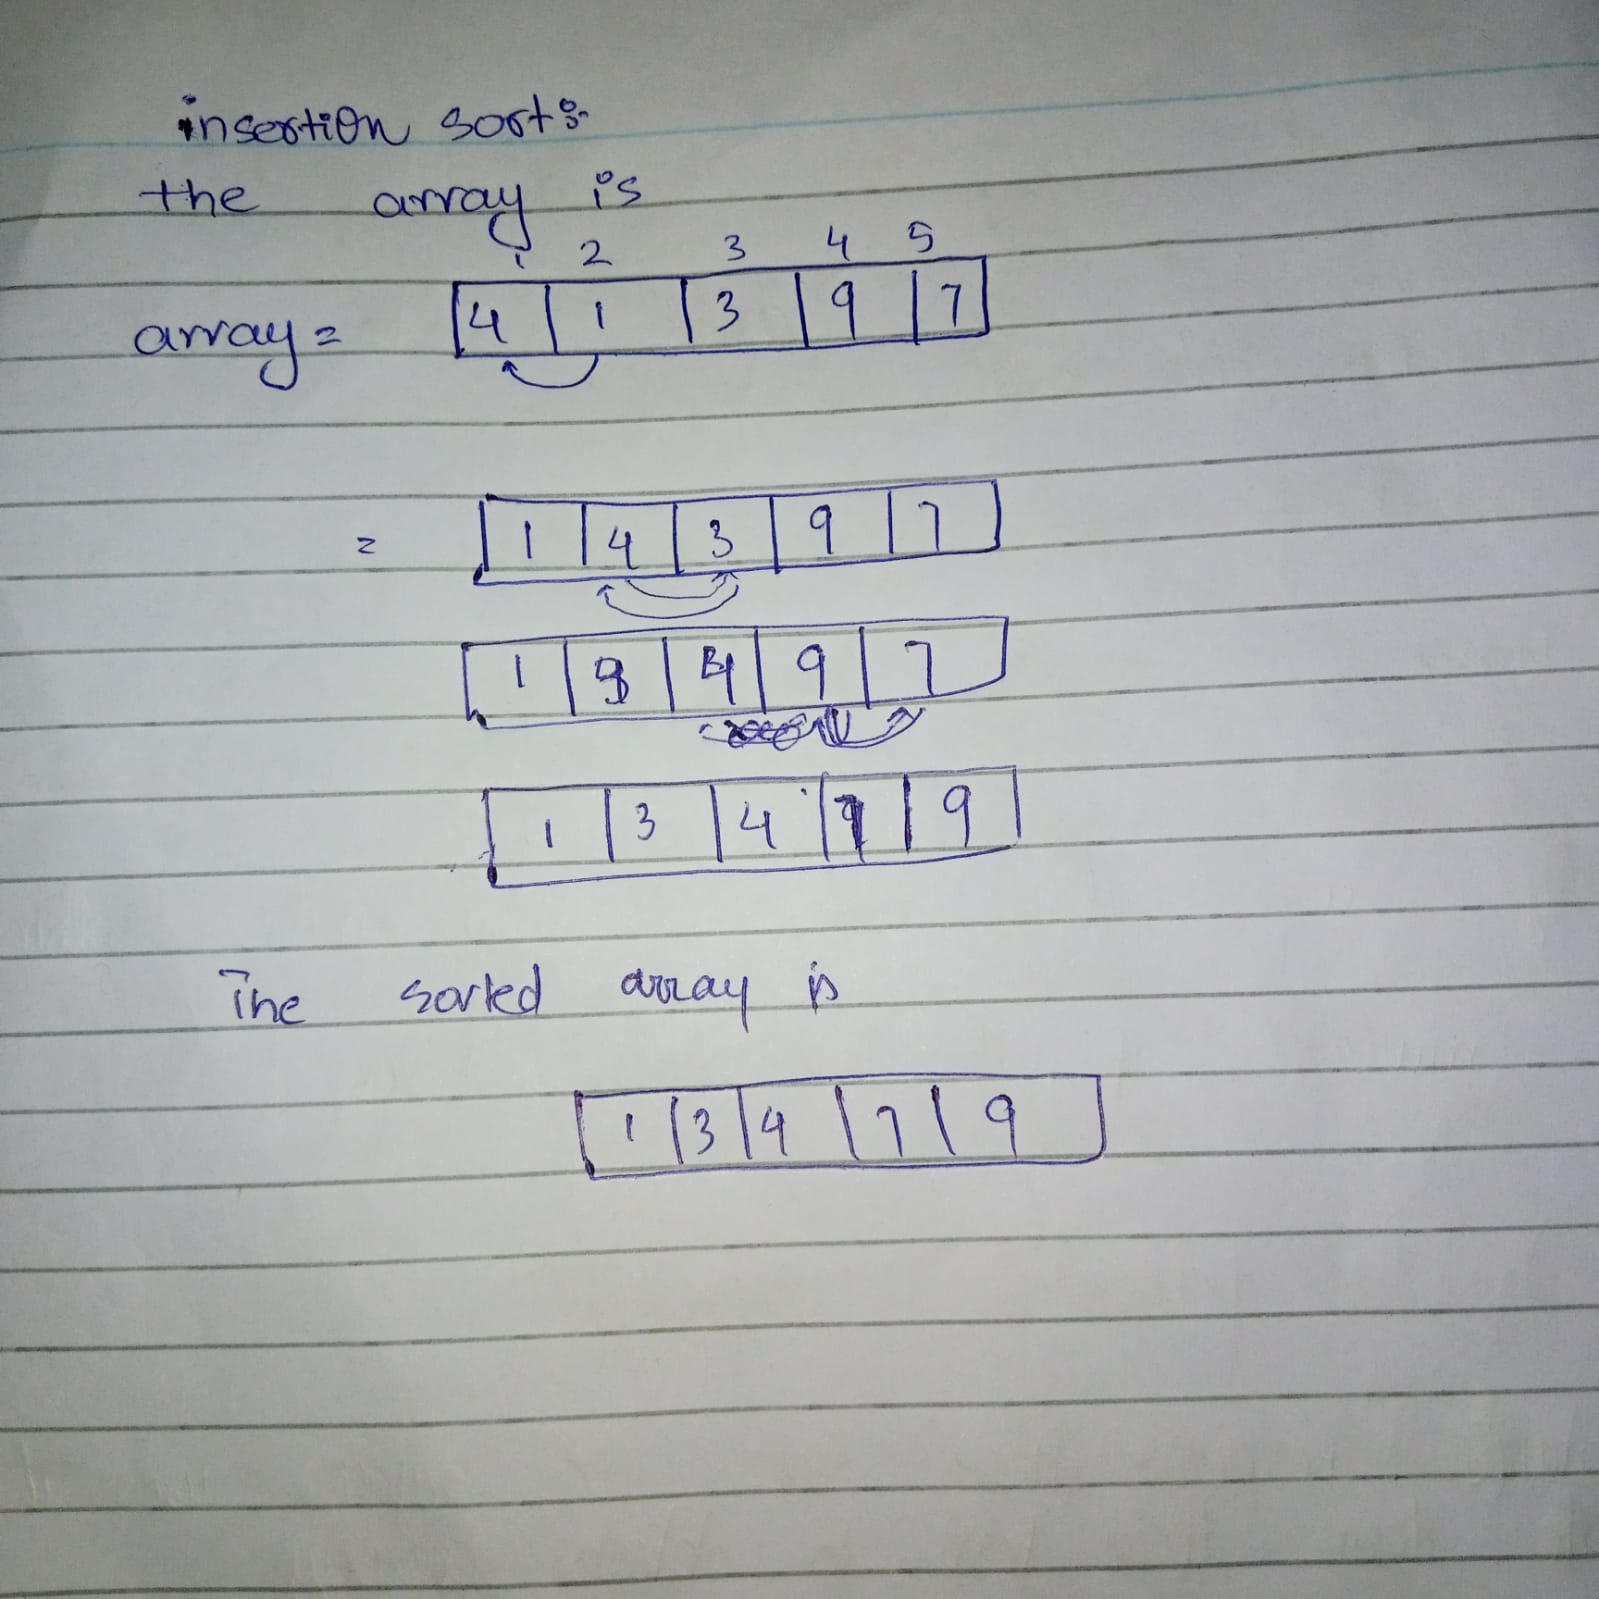 insertion sort:-
the array is
1 2 3 4 5
array = 4 1 3 9 7
= 1 4 3 9 7
1 3 4 9 7
1 3 4 7 9
The sorted array is
1 3 4 7 9